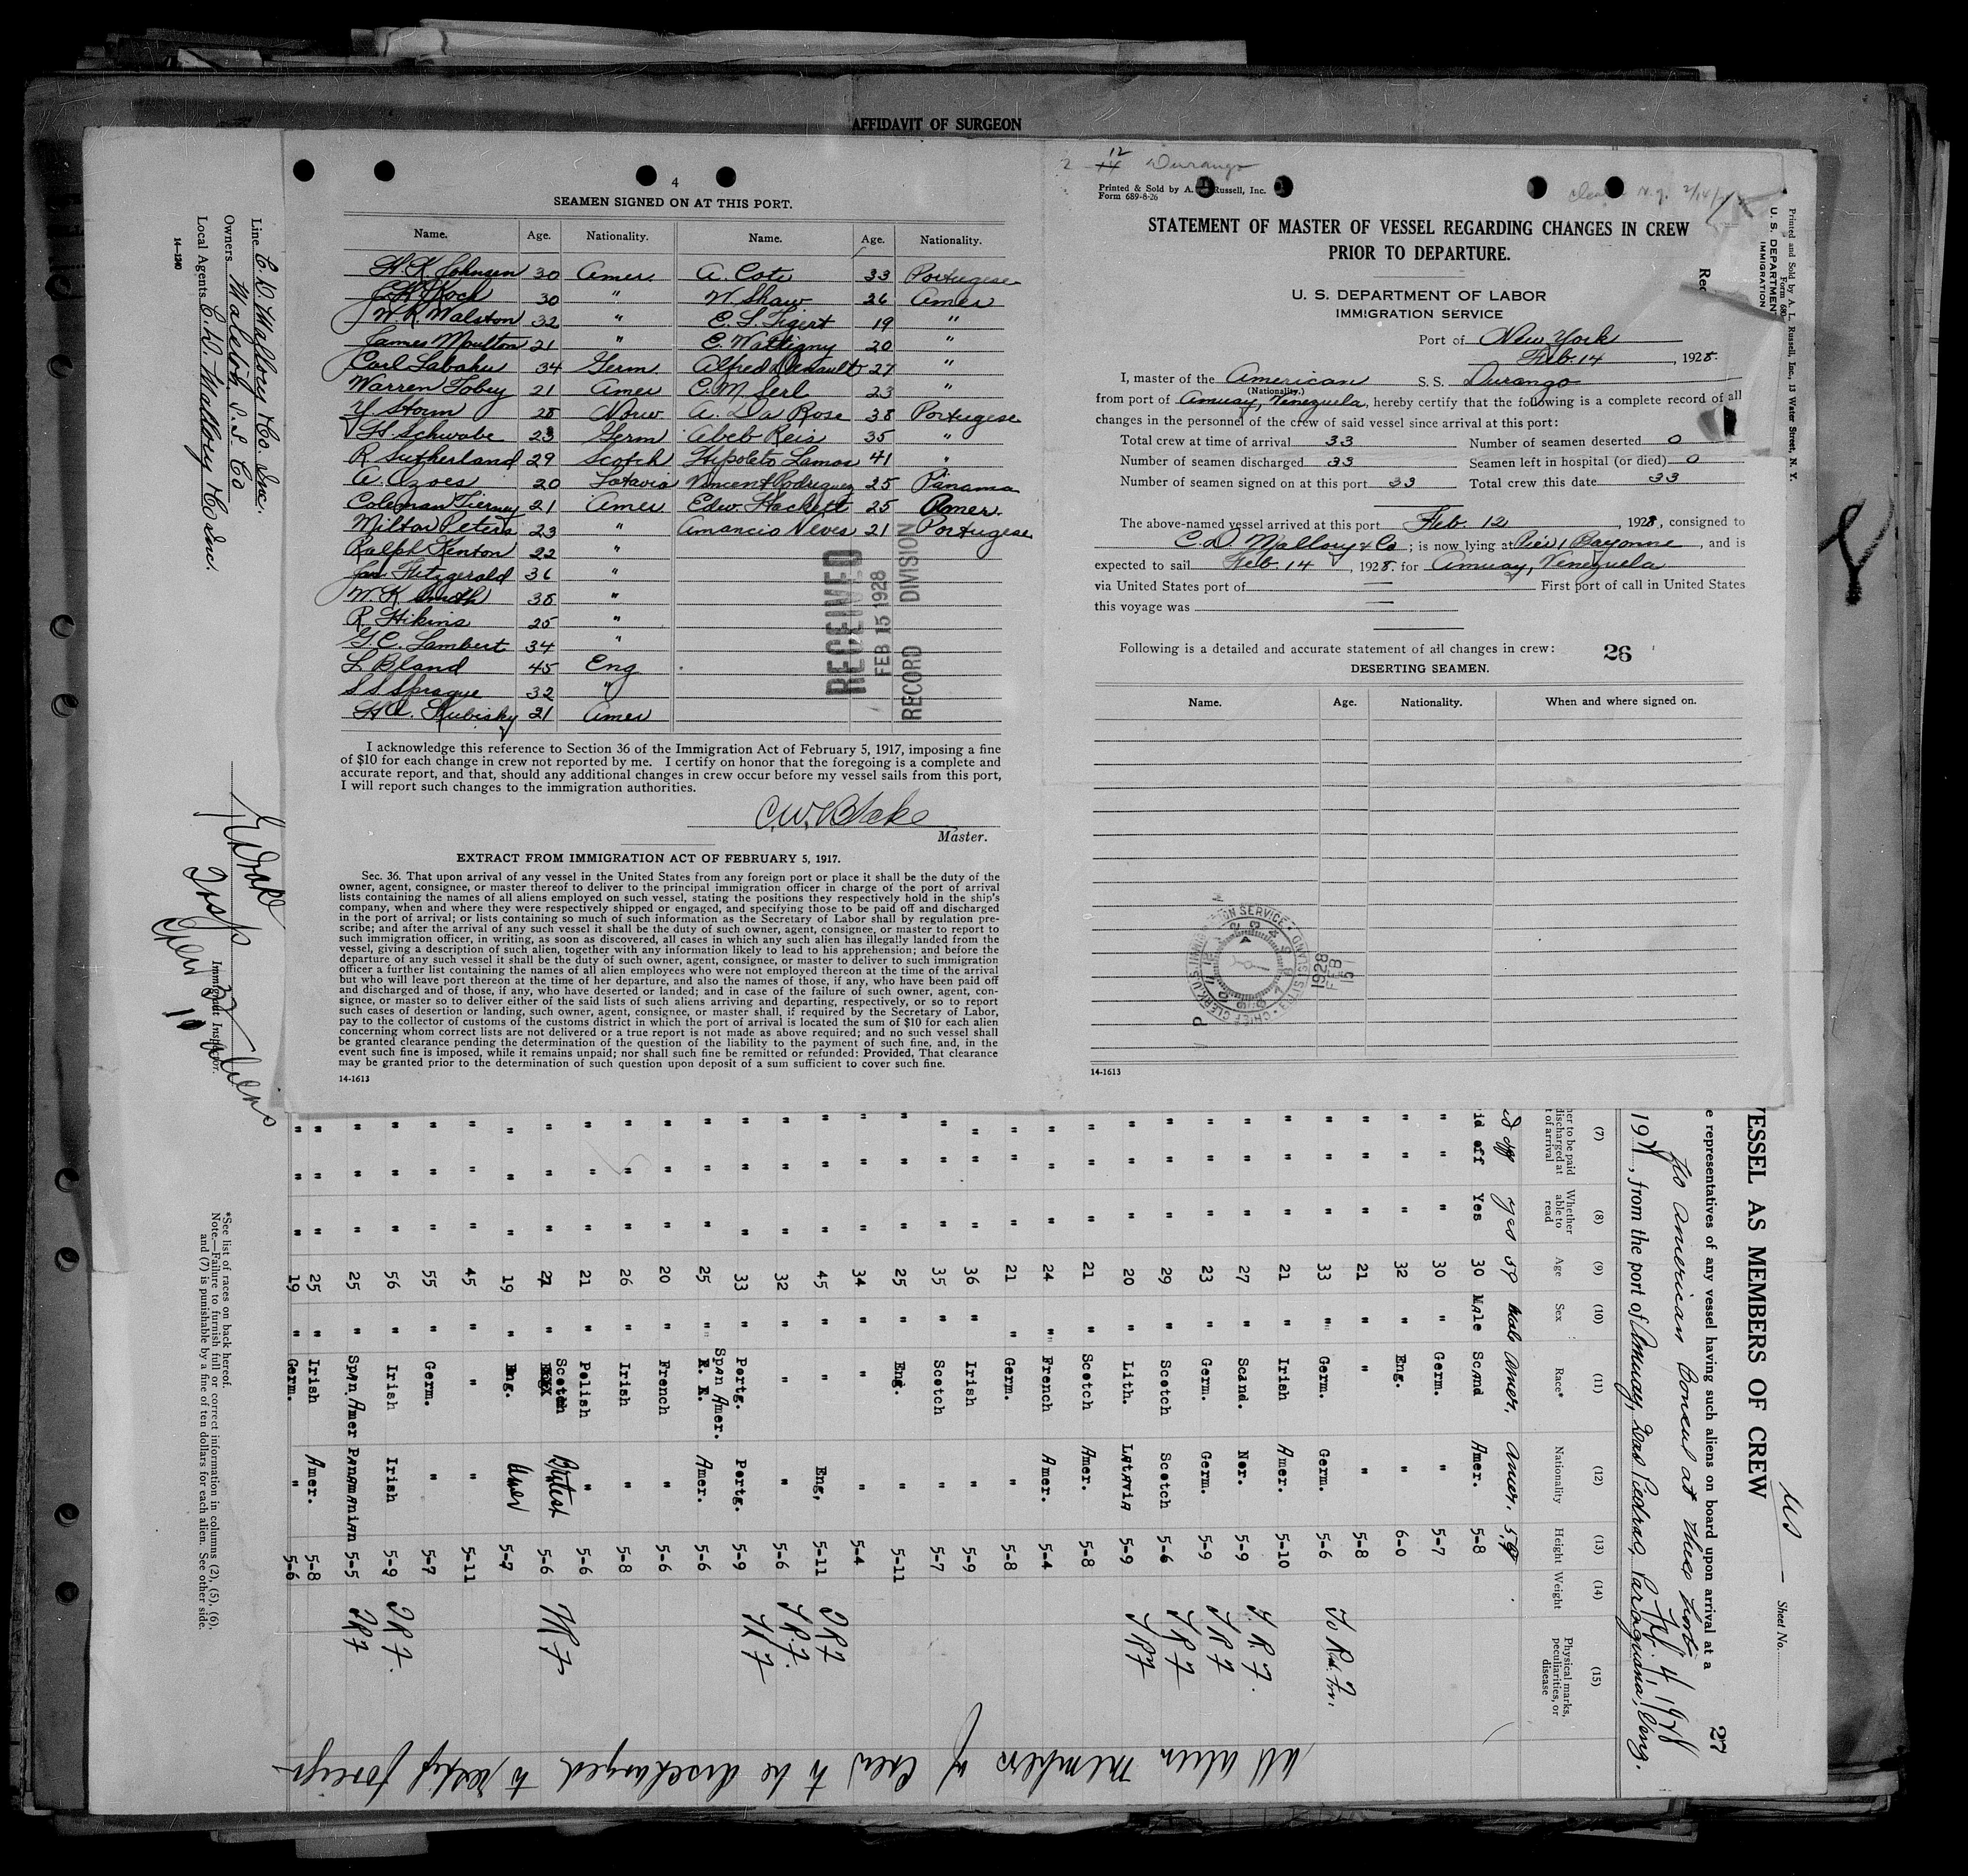 AFFIDAVIT OF SURGEON
4
SEAMEN SIGNED ON AT THIS PORT.
Name. Age. Nationality. Name. Age. Nationality.
H. K. Johnsen 30 Amer A. Cota 33 Portugese
C. H. Koch 30 " W. Shaw 26 Amer
W. R. Walston 32 " E. L. Tigert 19 "
James Moulton 21 " E. Wattigny 20 "
Carl Labahn 34 Germ Alfred Denault 27 "
Warren Tobey 21 Amer C. M. Serl 23 "
Y Storm 28 Norw A. Da Rose 38 Portugese
H Schwabe 23 Germ Abeb Reis 35 "
R Sutherland 29 Scotch Hipoleto Lamos 41 "
A. Ozoes 20 Latavia Vincent Rodriguez 25 Panama
Coleman Tierney 21 Amer Edw. Hackett 25 Amer.
Milton Peters 23 " Amancio Neves 21 Portugese
Ralph Kenton 22 "
Fitzgerald 36 "
W. K Smith 38 "
R. Hikins 25 "
G. C. Lambert 34 "
L Bland 45 Eng
S S Sprague 32 "
H A. Kubisky 21 Amer
RECEIVED
FEB 15 1928
RECORD DIVISION
I acknowledge this reference to Section 36 of the Immigration Act of February 5, 1917, imposing a fine
of $10 for each change in crew not reported by me. I certify on honor that the foregoing is a complete and
accurate report, and that, should any additional changes in crew occur before my vessel sails from this port,
I will report such changes to the immigration authorities.
C. W. Blake
Master.
EXTRACT FROM IMMIGRATION ACT OF FEBRUARY 5, 1917.
Sec. 36. That upon arrival of any vessel in the United States from any foreign port or place it shall be the duty of the
owner, agent, consignee, or master thereof to deliver to the principal immigration officer in charge of the port of arrival
lists containing the names of all aliens employed on such vessel, stating the positions they respectively hold in the ship's
company, when and where they were respectively shipped or engaged, and specifying those to be paid off and discharged
in the port of arrival; or lists containing so much of such information as the Secretary of Labor shall by regulation pre-
scribe; and after the arrival of any such vessel it shall be the duty of such owner, agent, consignee, or master to report to
such immigration officer, in writing, as soon as discovered, all cases in which any such alien has illegally landed from the
vessel, giving a description of such alien, together with any information likely to lead to his apprehension; and before the
departure of any such vessel it shall be the duty of such owner, agent, consignee, or master to deliver to such immigration
officer a further list containing the names of all alien employees who were not employed thereon at the time of the arrival
but who will leave port thereon at the time of her departure, and also the names of those, if any, who have been paid off
and discharged and of those, if any, who have deserted or landed; and in case of the failure of such owner, agent, con-
signee, or master so to deliver either of the said lists of such aliens arriving and departing, respectively, or so to report
such cases of desertion or landing, such owner, agent, consignee, or master shall, if required by the Secretary of Labor,
pay to the collector of customs of the customs district in which the port of arrival is located the sum of $10 for each alien
concerning whom correct lists are not delivered or a true report is not made as above required; and no such vessel shall
be granted clearance pending the determination of the question of the liability to the payment of such fine, and, in the
event such fine is imposed, while it remains unpaid; nor shall such fine be remitted or refunded: Provided, That clearance
may be granted prior to the determination of such question upon deposit of a sum sufficient to cover such fine.
14-1613
2 14 12 Durango
Printed & Sold by A. Russell, Inc.
Form 689-8-26
N. Y. 2/14/28
STATEMENT OF MASTER OF VESSEL REGARDING CHANGES IN CREW
PRIOR TO DEPARTURE.
U. S. DEPARTMENT OF LABOR
IMMIGRATION SERVICE
Port of New York
Feb. 14, 1928.
I, master of the American S. S. Durango
(Nationality.)
from port of Amuay, Venezuela, hereby certify that the following is a complete record of all
changes in the personnel of the crew of said vessel since arrival at this port:
Total crew at time of arrival 33 Number of seamen deserted 0
Number of seamen discharged 33 Seamen left in hospital (or died) 0
Number of seamen signed on at this port 33 Total crew this date 33
The above-named vessel arrived at this port Feb. 12, 1928, consigned to
C. D. Mallory & Co; is now lying at Pier 1 Bayonne, and is
expected to sail Feb. 14, 1928. for Amuay, Venezuela
via United States port of — First port of call in United States
this voyage was —
Following is a detailed and accurate statement of all changes in crew: 26
DESERTING SEAMEN.
Name. Age. Nationality. When and where signed on.
1928 FEB 15
14-1613
Printed and Sold by A. L. Russell, Inc., 13 Water Street, N. Y.
Form 680
U. S. DEPARTMENT
IMMIGRATION
Rec
US — Sheet No.
VESSEL AS MEMBERS OF CREW
27
e representatives of any vessel having such aliens on board upon arrival at a
No American Consul at these Ports
Feb. 4, 1928
19, from the port of Amuay, Las Piedras, Paraguana, Venz.
(7) (8) (9) (10) (11) (12) (13) (14) (15)
her to be paid discharged at t of arrival
Whether able to read
Age Sex Race* Nationality Height Weight
Physical marks, peculiarities, or disease
d off yes 59 Male Amer. Amer.
id off Yes 30 Male Scand Amer. 5-8
" " " 30 " Germ. " 5-7
" " " 32 " Eng. " 6-0
" " " 21 " " " 5-8
" " " 33 " Germ. Germ. 5-6
" " " 21 " Irish Amer. 5-10
" " " 27 " Scand. Nor. 5-9
" " " 23 " Germ. Germ. 5-9
" " " 29 " Scotch Scotch 5-6
" " " 20 " Lith. Latavia 5-9
" " " 21 " Scotch Amer. 5-8
" " " 24 " French Amer. 5-4
" " " 21 " Germ. " 5-8
" " " 36 " Irish " 5-9
" " " 35 " Scotch " 5-7
" " " 25 " Eng. " 5-11
" " " 34 " " " 5-4
" " " 45 " " Eng. 5-11
" " " 32 " " " 5-6
" " " 33 " Portg. Portg. 5-9
" " " 25 " Span Amer. Amer. 5-6
" " " 20 " French " 5-6
" " " 26 " Irish " 5-8
" " " 21 " Polish " 5-6
" " " " Scotch British 5-6
" " " 19 " Eng. Amer 5-7
" " " 45 " " " 5-11
" " " 55 " Germ. " 5-7
" " " 56 " Irish Irish 5-9
" " " 25 " Span. Amer Panamanian 5-5
" " " 25 " Irish Amer. 5-8
" " " 19 " Germ. " 5-6
All alien members of crew to be discharged to reship foreign
Line C. D. Mallory & Co. Inc.
Owners Malston S. S. Co
Local Agents C. D. Mallory & Co Inc.
14-1240
Insp
Immigrant Inspector.
*See list of races on back hereof.
Note.—Failure to furnish full or correct information in columns (2), (5), (6),
and (7) is punishable by a fine of ten dollars for each alien. See other side.